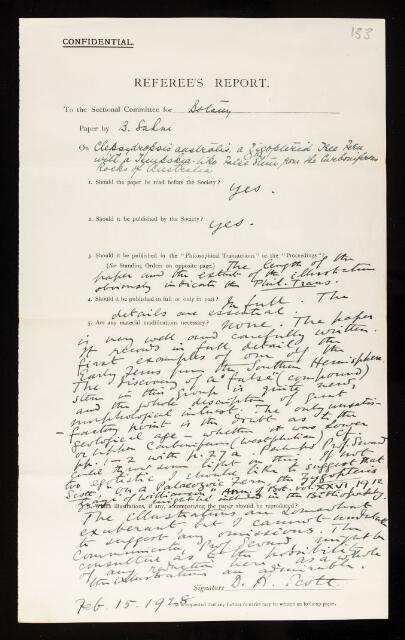 CONFIDENTIAL.
133
REFEREE'S REPORT.
To the Sectional Committee for Botany
Paper by B. Sahni
On Clepsydropsis australis, a Zygopterid Tree Fern
with a Tempskya-like False Stem, from the Carboniferous
Rocks of Australia
1. Should the paper be read before the Society? Yes.
2. Should it be published by the Society? Yes.
3. Should it be published in the "Philosophical Transactions" or the "Proceedings"?
(See Standing Orders on opposite page.) The length of the
paper and the extent of the illustration
obviously indicate the Phil. Trans.
4. Should it be published in full or only in part? In full. The
details are essential.
5. Are any material modifications necessary? None. The paper
is very well and carefully written.
It records in full detail the
first examples of one of the
Early Ferns from the Southern Hemisphere
The discovery of a "false" (compound)
stem in this group is quite new
and the whole description of great
morphological interest. The only unsatis-
factory point is the doubt as to the
geological age – whether it was Lower
or Upper Carboniferous (Westphalian) cf.
pp. 1-2 with p. 27 a. Perhaps Prof. Seward
could throw some light on this. If not
too egoistic I should like to suggest that
Scott, "On a Palaeozoic Fern, the Zygopteris
Grayi of Williamson" Annals of Bot. vol. XXVI, 1912
might be included in the Bibliography.
6. illustrations, if any, accompanying the paper should be reproduced?
The illustrations are somewhat
exuberant but I cannot undertake
to suggest any omissions. The
Communicator, Prof. Seward, might be
consulted as to the possibility
of any reduction here. As a whole
the illustrations are admirable.
Signature D. H. Scott
Feb. 15. 1928
requested that any further remarks may be written on foolscap paper.